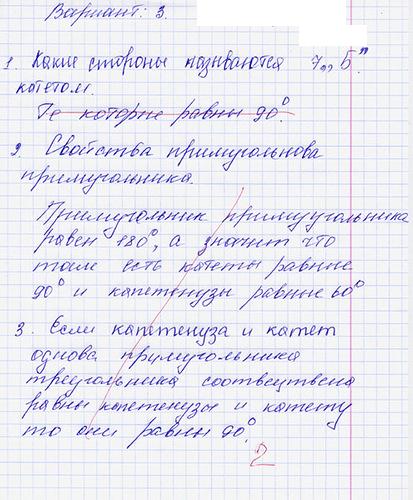 Вариант: 3.
1. Какие стороны называются 7 „Б"
котетом.
Те которые равны 90°.
2. Свойства примугольнова
примугольника.
Примугольник примууольника
равен 180°, а значит что
там есть катеты равные
90° и капетенузы равные 60°
3. Если капетенуза и катет
однова примугольника
треугольника соотвеутвена
равны капетенузы и катету
то они равны 90°.
2